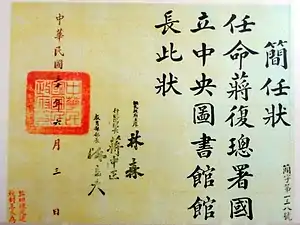 簡任狀
任命蔣復璁署國
立中央圖書館館
長此狀
簡字第一三八號
林森
行政院院長 蔣中正
教育部部長 陳立夫
中華民國 年 月三日